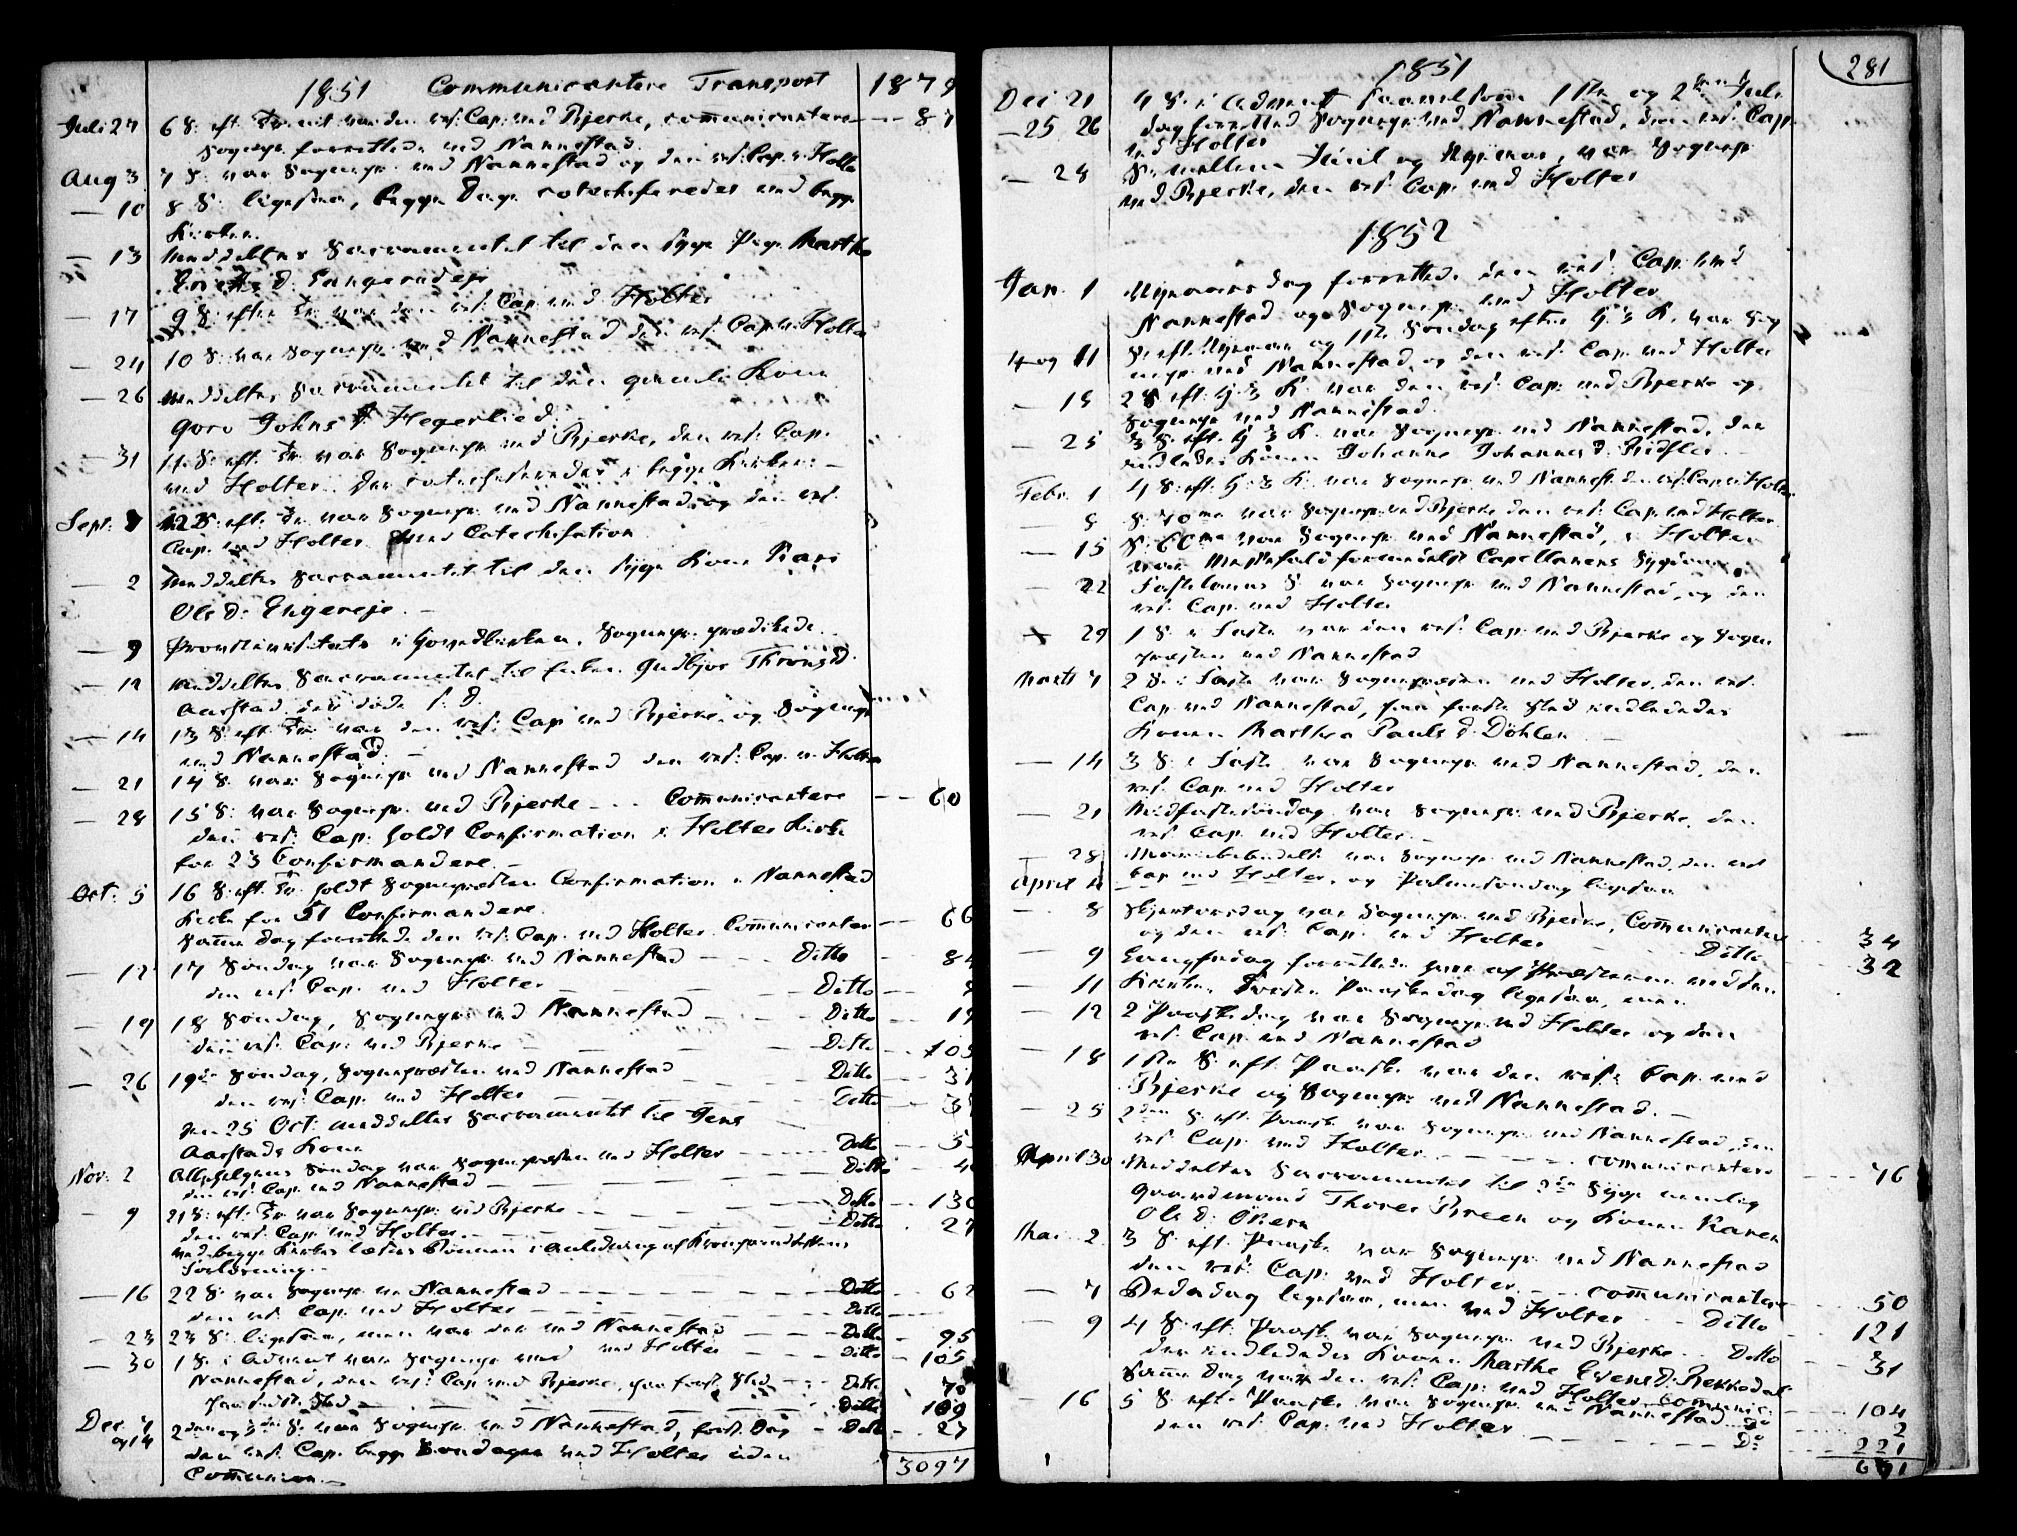 1851 Communicantere Transport 1879
Juli 27 6 S. eft. Tr. var den res. Cap. ved Bjerke, communicantere — 87
Sognepr. forrettede ved Nannestad.
Aug 3 7 S. var Sognepr. ved Nannestad og den res. Cap. v. Holter
— 10 8 S. ligesaa, begge Dage catechiseredes ved begge
Kirker.
— 13 Meddeltes Sacramentet til den syge Pige Marthe
d. Engeradejet
— 17 9 S. efter Tr. var den res. Cap. ved Holter
24 10 S. var Sognepr. ved Nannestad den res. Cap. v. Holter
— 26 Meddeltes Sacramentet til den gamle Kone
Goro Johns d. Hegerlied
— 31 11 S. eft. Tr. var Sognepr. ved Bjerke, den res. Cap.
ved Holter. Der catechiseredes i begge Kirker. —
Sept. 7 12 S. eft. Tr. var Sognepr. ved Nannestad og den res.
Cap. ved Holter med Catechisation
— 2 Meddeltes Sacramentet til den syge Kone Kari
Ole d. Engereje. —
— 9 Provstevisitats i Hovedkirken. Sognepr. prædikede.
— 12 Meddeltes Sacramentet til Enken Gudbjor Throngsd.
Aarstad, der døde s. D.
— 14 13 S. eft. Tr. var den res. Cap. ved Bjerke og Sognepr.
ved Nannestad. —
— 21 14 S. var Sognepr. ved Nannestad den res. Cap. v. Holter
— 28 15 S. var Sognepr. ved Bjerke - - - Communicantere — 60
den res. Cap. holdt Confirmation i Holter Kirke
for 23 Confirmandere. —
Oct. 5 16 S. eft. Tr. holdt Sognepræsten Confirmation i Nannestad
Kirke for 51 Confirmandere.
Samme Dag forrettede den res. Cap. ved Holter. Communicanter — 66
— 12 17 Søndag var Sognepr. ved Nannestad — — Ditto — 84
den res. Cap. ved Holter — — — Ditto —
— 19 18 Søndag, Sognepr. ved Nannestad — — Ditto — 19
den res. Cap. ved Bjerke — — — Ditto — 105
— 26 19de Søndag, Sognepræsten ved Nannestad — — Ditto — 31
den res. Cap. ved Holter — — — Ditto —
Den 25 Oct. meddeltes Sacramentet til Jens
Aarstads Kone — — Ditto — 5
Nov. 2 Allehelgens Søndag var Sognepræsten ved Holter — — Ditto —
den res. Cap. ved Nannestad — — — Ditto — 130
— 9 21 S. eft. Tr. var Sognepr. ved Bjerke — — Ditto — 27
den res. Cap. ved Holter. — — Ditto
Ved begge Kirker læstes Bønnen i Anledning af Kronprindsessens
Forløsning. —
— 16 22 S. var Sognepr. ved Nannestad — — — Ditto — 62
den res. Cap. ved Holter — — — Ditto —
— 23 23 S. ligesaa, men var der ved Nannestad — — Ditto — 95
ved Holter — — Ditto — 105
— 30 1 S. i Advent var Sognepr. ved
Nannestad, den res. Cap. ved Bjerke, paa første Sted — — Ditto — 70
paa sidste Sted — — — Ditto — 109
Dec. 7 og 14 2den og 3die S. var Sognepr. ved Nannestad, først. Dag — Ditto — 27
den res. Cap. begge Søndagen ved Holter uden
Communion. — 3097
281
1851
Dec 21 4 S. i Advent saavelsom 1ste og 2den Jule
— 25 26 dag forrettede Sognepr. ved Nannestad, den res. Cap.
ved Holter
— 28 S. mellem Juul og Nytaar, var Sognepr.
ved Bjerke, den res. Cap. ved Holter
1852
Jan. 1 Nytaarsdag forrettede den res. Cap. ved
Nannestad og Sognepr. ved Holter
4 og 11 S. eft. Nytaar og 1ste Søndag efter H. 3 K. var Sog
nepr. ved Nannestad og den res. Cap. ved Holter
— 18 2 S. eft. H. 3 K. var den res. Cap. ved Bjerke og
Sognepr. ved Nannestad.
— 25 3 S. eft. H. 3 K. var Sognepr. ved Nannestad, der
indledes Konen Johanne Johannes d.
Febr. 1 4 S. eft. H. 3 K. var Sognepr. ved Nannest. den res. Cap. v. Holter
— 8 S. 70me var Sognepr. ved Bjerke den res. Cap. ved Holter
— 15 S. 60me var Sognepr. ved Nannestad, i Holter
var Messefald formedelst Capellanens Sygdom.
— 22 Fastelavns S. var Sognepr. ved Nannestad, og den
res. Cap. ved Holter
— 29 1 S. i Faste var den res. Cap. ved Bjerke og Sogne
præsten ved Nannestad
Marts 7 2 S. i Faste var Sognepræsten ved Holter, den res.
Cap. ved Nannestad, paa første Sted indledes
Konen Marthea Pauls d. Döhlen —
— 14 3 S. i Faste var Sognepr. ved Nannestad, den
res. Cap. ved Holter
— 21 Midfastesøndag var Sognepr. ved Bjerke, den
res. Cap. ved Holter. —
— 28 Mariæbebudelse var Sognepr. ved Nannestad, den res.
April 4 Cap. ved Holter, og Palmesøndag ligesaa
— 8 Skjertorsdag var Sognepr. ved Bjerke, Communicantere - - - 34
og den res. Cap. ved Holter — — Ditto - - - 32
— 9 Langfredag forrettede hver af Præsterne ved sin
— 11 Kirke, Første Paaskedag ligesaa, men
— 12 2 Paaskedag var Sognepr. ved Holter og den
res. Cap. ved Nannestad
— 18 1ste S. eft. Paaske var den res. Cap. ved
Bjerke og Sognepr. ved Nannestad. —
— 25 2den S. eft. Paaske var Sognepr. ved Nannestad, den
res. Cap. ved Holter. — — — communicantere - - - 76
April 30 Meddeltes Sacramentet til 2de Syge nemlig
Gaardmand Thorer Breen og Konen Karen
Ole d. Økern
Mai 2 3 S. eft. Paaske var Sognepr. ved Nannestad
den res. Cap. ved Holter. — - - communicantere - - 50
— 7 Bededag ligesaa, men ved Holter — — Ditto - - 121
— 9 4 S. eft. Paaske var Sognepr. ved Bjerke - - Ditto - - 31
der indledes Konen Marthe Evens d. Bekkedal
Samme Dag var den res. Cap. ved Holter communic. - - 104
— 16 5 S. eft. Paaske var Sognepr. ved Nannestad - - Do - - 2
den res. Cap. ved Holter — — — Do - - 221
671